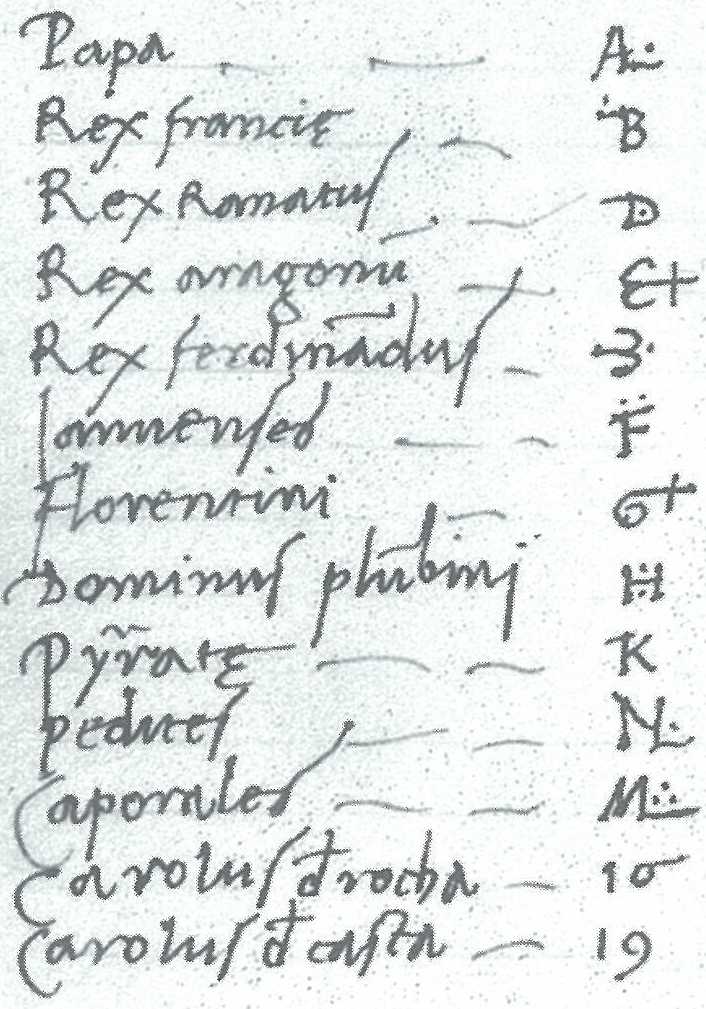 Papa A
Rex francię B
Rex Ranatus D
Rex aragonū E+
Rex ferdinādus 3
Januenses F
Florentini 6+
Dominus plūbinj H
Pyratę K
pedites N
Caporales M
Carolus đ rocha 10
Carolus đ casta 19